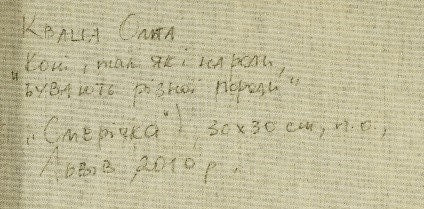 Кваша Ольга
"Коти, так як і народи,
бувають різної породи"
"Смерічка", 30х30 см, п.о.,
Львів, 2010 р.